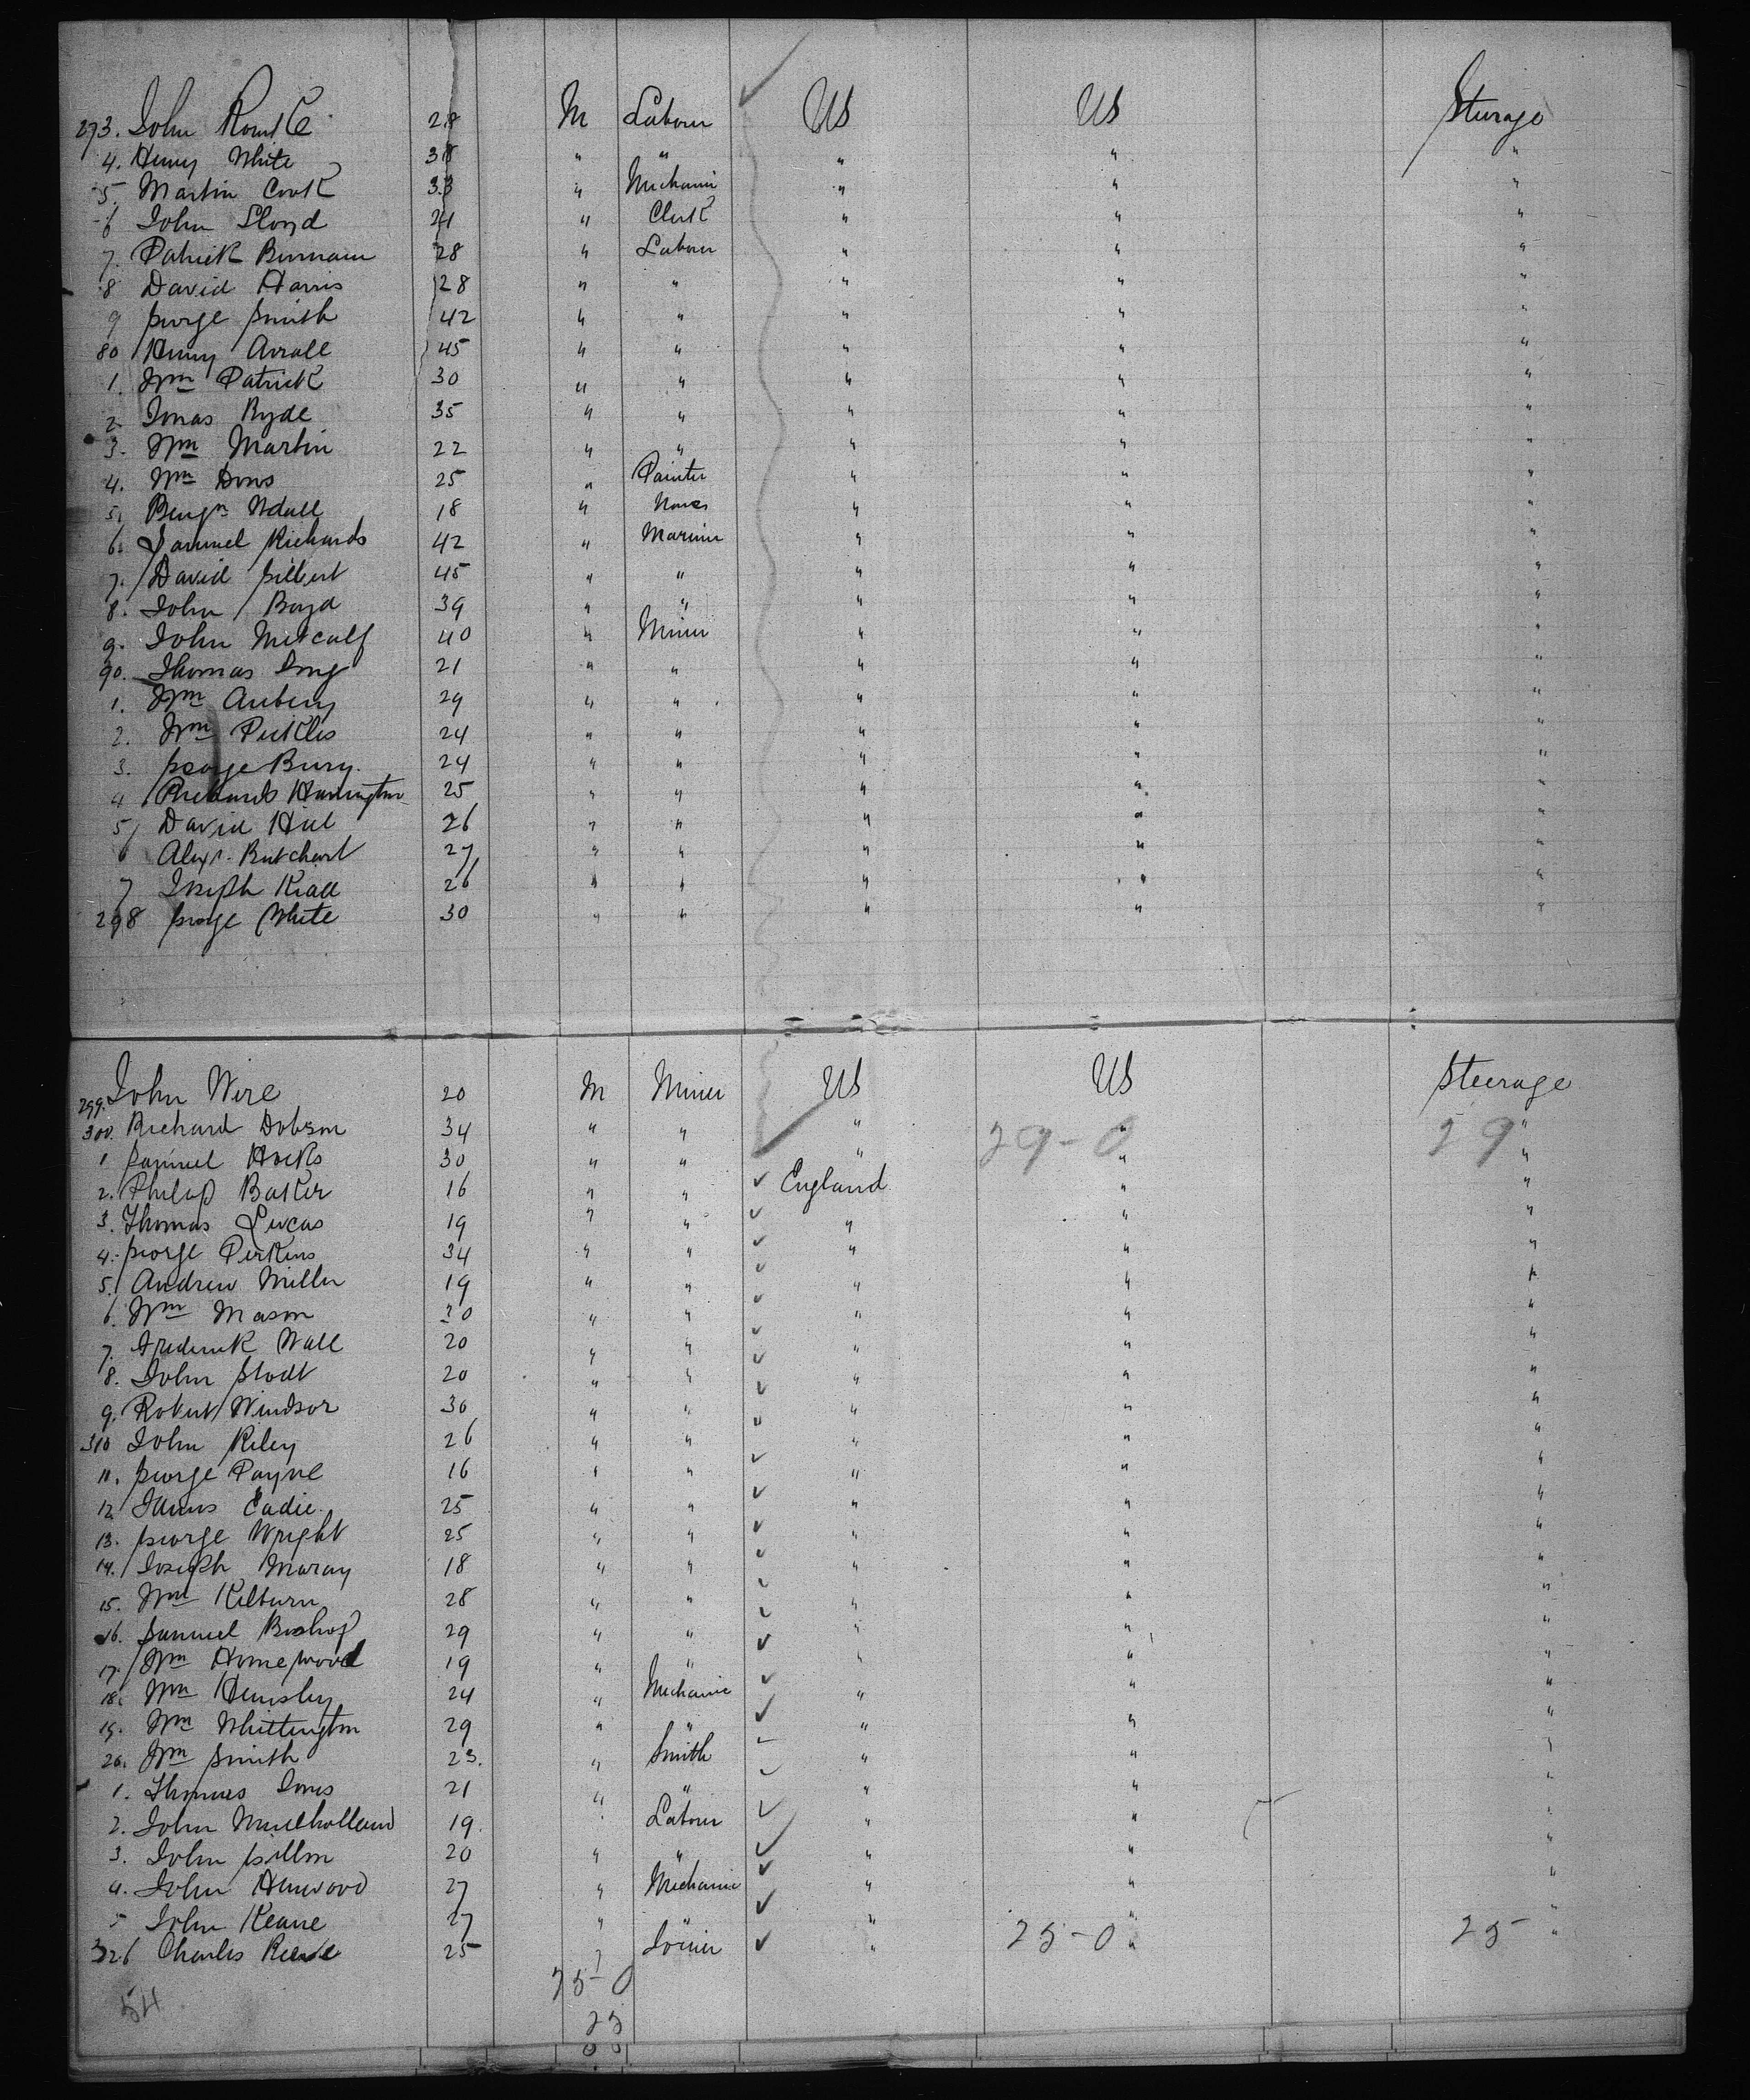 273. John 28 M Labour US US Sturage
4. Henry White 38 " " " " "
5. Martin Cook 33 " Mechanic " " "
6 John Lloyd 21 " Clerk " " "
7. Patrick 28 " Labour " " "
8 David Harris 28 " " " " "
9 George Smith 42 " " " " "
80 Henry 45 " " " " "
1. Wm Patrick 30 " " " " "
2. Jonas Ryde 35 " " " " "
3. Wm Martin 22 " " " " "
4. Wm 25 " Painter " " "
5, Benjn 18 " " " "
6. Samuel Richards 42 " Mariner " " "
7. David Gilbert 45 " " " " "
8. John Boyd 39 " " " " "
9. John Metcalf 40 " Miner " " "
90. Thomas 21 " " " " "
1. Wm Aubery 29 " " " " "
2. Wm Pickles 24 " " " " "
3. George Bury. 24 " " " " "
4 Richard Harrington 25 " " " " "
5 David Hill 26 " " " " "
6 Alexr. Butchart 27 " " " " "
7 Joseph 26 " " " " "
298 George White 30 " " " " "
299. John Wire 20 M Miner US US Steerage
300. Richard Dobson 34 " " " " "
29-0 29
1 Samuel Hocks 30 " " " " "
2. Philip Baker 16 " " England " "
3. Thomas Lucas 19 " " " " "
4. George Perkins 34 " " " " "
5. Andrew Miller 19 " " " " "
6. Wm Mason 20 " " " " "
7. Frederick Wall 20 " " " " "
8. John Stodt 20 " " " " "
9. Robert Windsor 30 " " " " "
310 John Riley 26 " " " " "
11. George Payne 16 " " " " "
12 James Eadie. 25 " " " " "
13. George Wright 25 " " " " "
14. Joseph Moray 18 " " " " "
15. Wm Kilburn 28 " " " " "
16. Samuel Bishop 29 " " " " "
17. Wm Homewood 19 " " " " "
18. Wm Hemsley 24 " Mechanic " " "
19. Wm Whittington 29 " " " " "
20. Wm Smith 23. " Smith " " "
1. Thomas Jones 21 " " " " "
2. John Mullholland 19. " Labour " " "
3. John Gillon 20 " " " " "
4. John Henwood 27 " Mechanic " " "
5 John Keane 27 " " " " "
326 Charles 25 " Joiner " 25-0 " 25 "
54
25-0